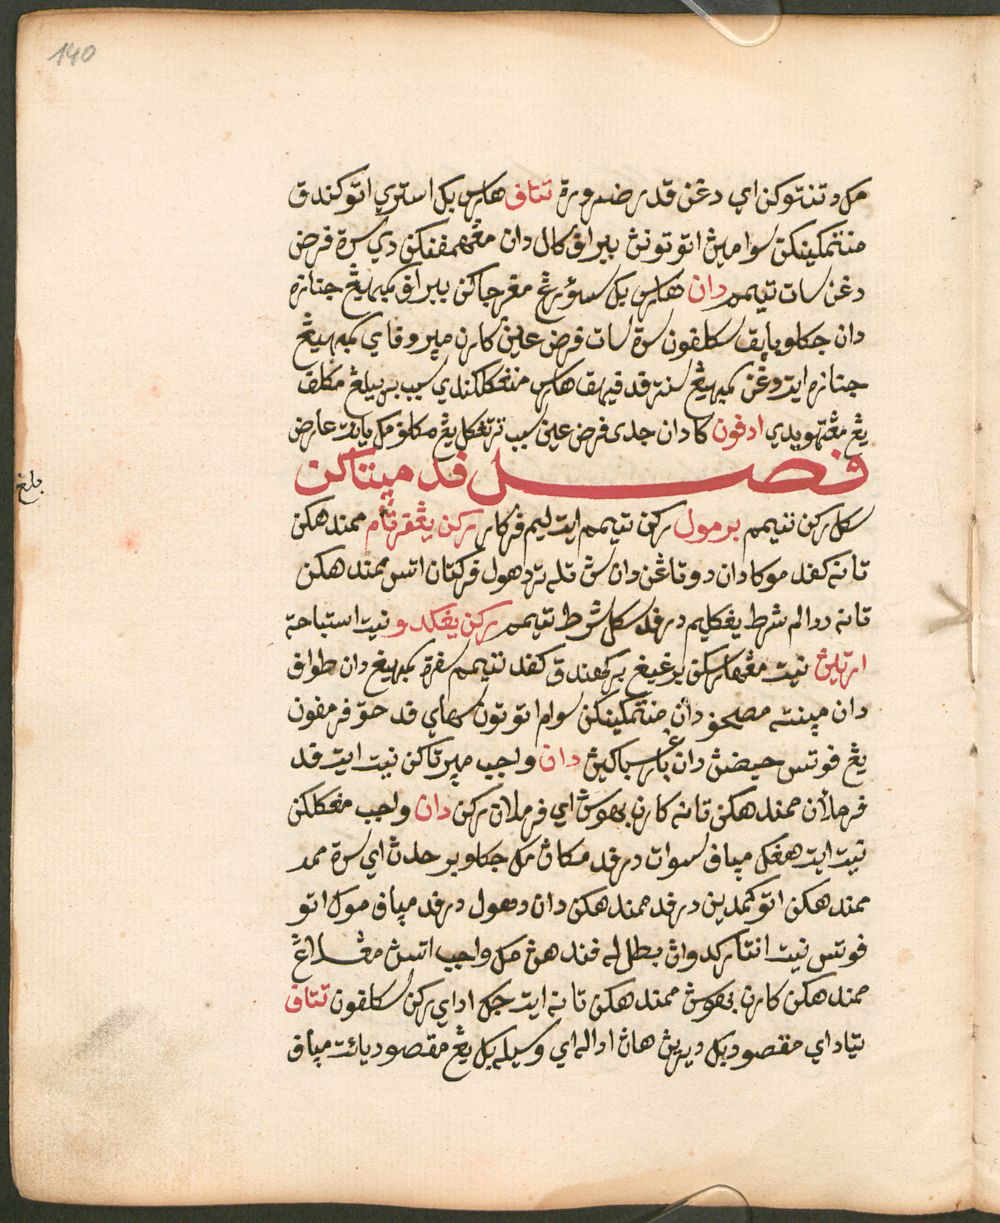 140
مک دتنتوکن اي دڠن قدر ضرورة تتاف هارس بک استري اتو کندق
منتمکينکن سوامين اتو تونن ببراف کال دان مڠهمفنکن دي سرة فرض
دڠن سات تيمم دان هارس بک سؤرڠ مڠرجاکن ببراف سمبهيڠ جنازه
دان جکلو يايت سکلفون سرة سات فرض عين کارن مپروفاي سمبهيڠ
جنازه ايت دڠن سمبهيڠ سنة فد فيهق هارس مننڠکلکندي سبب بربيلڠ مکلف
يڠ مڠتهويدي ادفون کادان جدي فرض عين سبب تڠکل يڠ مکلف مک يائت عارض
فصل فد مپتاکن
سکل رکن تيمم برمول رکن تيمم ايت ليم فرکار رکن يڠفرتام ممندهکن
تانه کفد موکا دان دوتاڠن دان سڽ تله تردهول فرکتان اتس ممندهکن
تانه ددالم شرط يڠکليم درفد سکل شرط تيمم رکن يڠکدو نية استباحة
ارتيڽ نية مڠهارسکن برڠيڠ برکهندق کفد تيمم سفرة سمبهيڠ دان طواف
دان مپنته مصحف دان منتمکينکن سوام اتو تون سهاي فد حق فرمفون
يڠ فوتس حيضڽ دان بارسباکين دان واجب مپرتاکن نية ايت فد
فرملأن ممندهکن تانه کارن بهوسڽ اي فرملان رکن دان واجب مڠکلکن
نية ايت هڠک مپافو سوات درفد مکاڽ مک جکلو برحدث اي سرة ممد
ممندهکن اتو کمدين درفد ممندهکن دان دهول درفد مپافو موک اتو
فوتس نية انتار کدواڽ بطل له فندهن مک واجب اتسڽ مڠولاڠ
ممندهکن کارن بهوسڽ ممندهکن تانه ايت جک اداي رکن سکلفون تتاف
تياداي مقصود بک ديرين هاڽ اداله اي وسيله بک يڠ مقصود يائت مپافو
بلغ